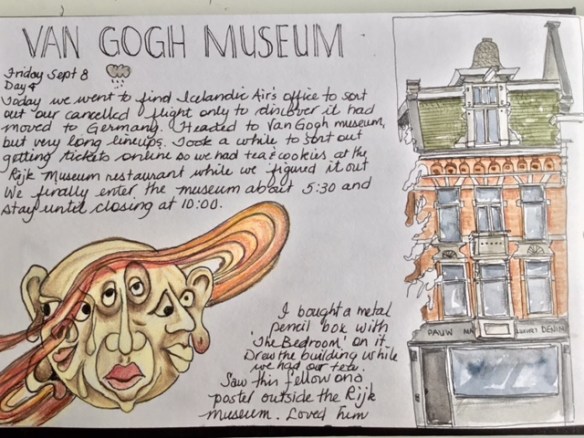 VAN GOGH MUSEUM
Friday Sept 8
Day 4
Today we went to find Icelandic Air's office to sort
out our cancelled flight only to discover it had
moved to Germany. Headed to Van Gogh museum,
but very long lineups. Took a while to sort out
getting tickets online so we had tea & cookies at the
Rijk Museum restaurant while we figured it out
We finally enter the museum about 5:30 and
stay until closing at 10:00.
I bought a metal
pencil box with
'The Bedroom' on it.
Drew the building while
we had our tea.
Saw this fellow on a
poster outside the Rijk
museum. Loved him
PAUW
DESIGN